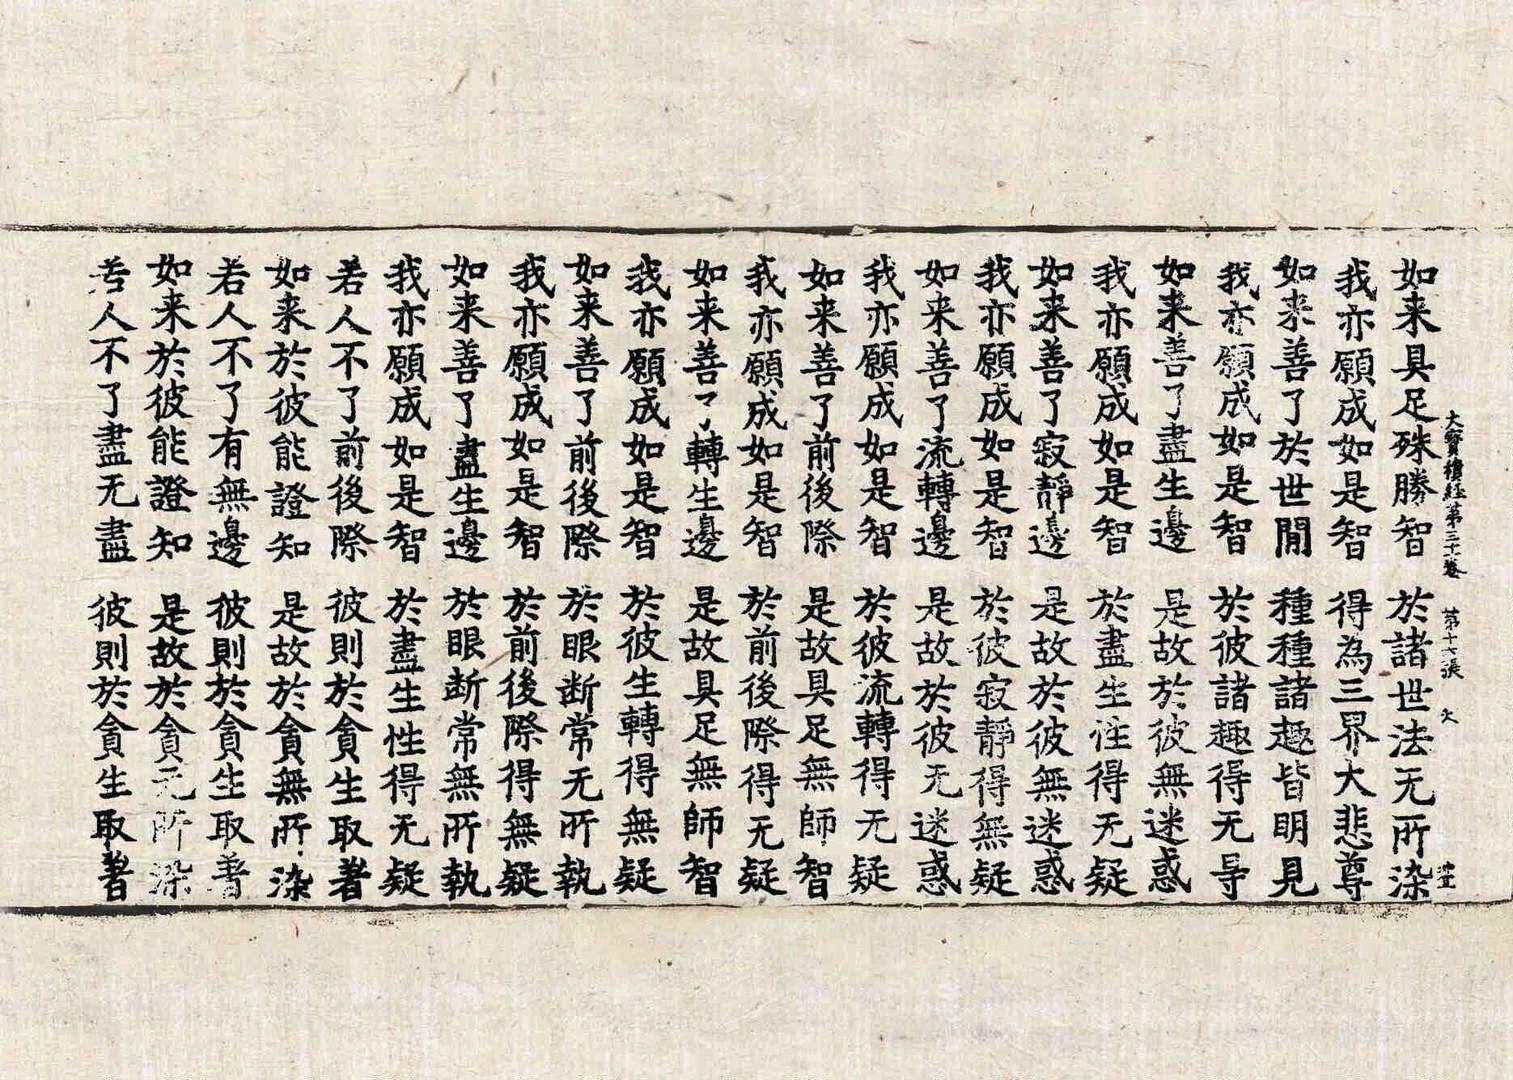 如来具足殊勝智 於諸世法无所染
大寶積経第三十卷 文
我亦願成如是智 得為三界大悲尊
如来善了於世間 種種諸趣皆明見
我亦願成如是智 於彼諸趣得无㝵
如来善了盡生邊 是故於彼無迷惑
我亦願成如是智 於盡生性得无疑
如来善了寂靜邊 是故於彼無迷惑
我亦願成如是智 於彼寂靜得無疑
如来善了流轉邊 是故於彼无迷惑
我亦願成如是智 於彼流轉得无疑
如来善了前後際 是故具足無師智
我亦願成如是智 於前後際得无疑
如来善了轉生邊 是故具足無師智
我亦願成如是智 於彼生轉得無疑
如来善了前後際 於眼断常无所執
我亦願成如是智 於前後際得無疑
如来善了盡生邊 於眼断常無所執
我亦願成如是智 於盡生性得无疑
若人不了前後際 彼則於貪生取著
如来於彼能證知 是故於貪無所染
若人不了有無邊 彼則於貪生取著
如来於彼能證知 是故於貪无所染
若人不了盡无盡 彼則於貪生取著